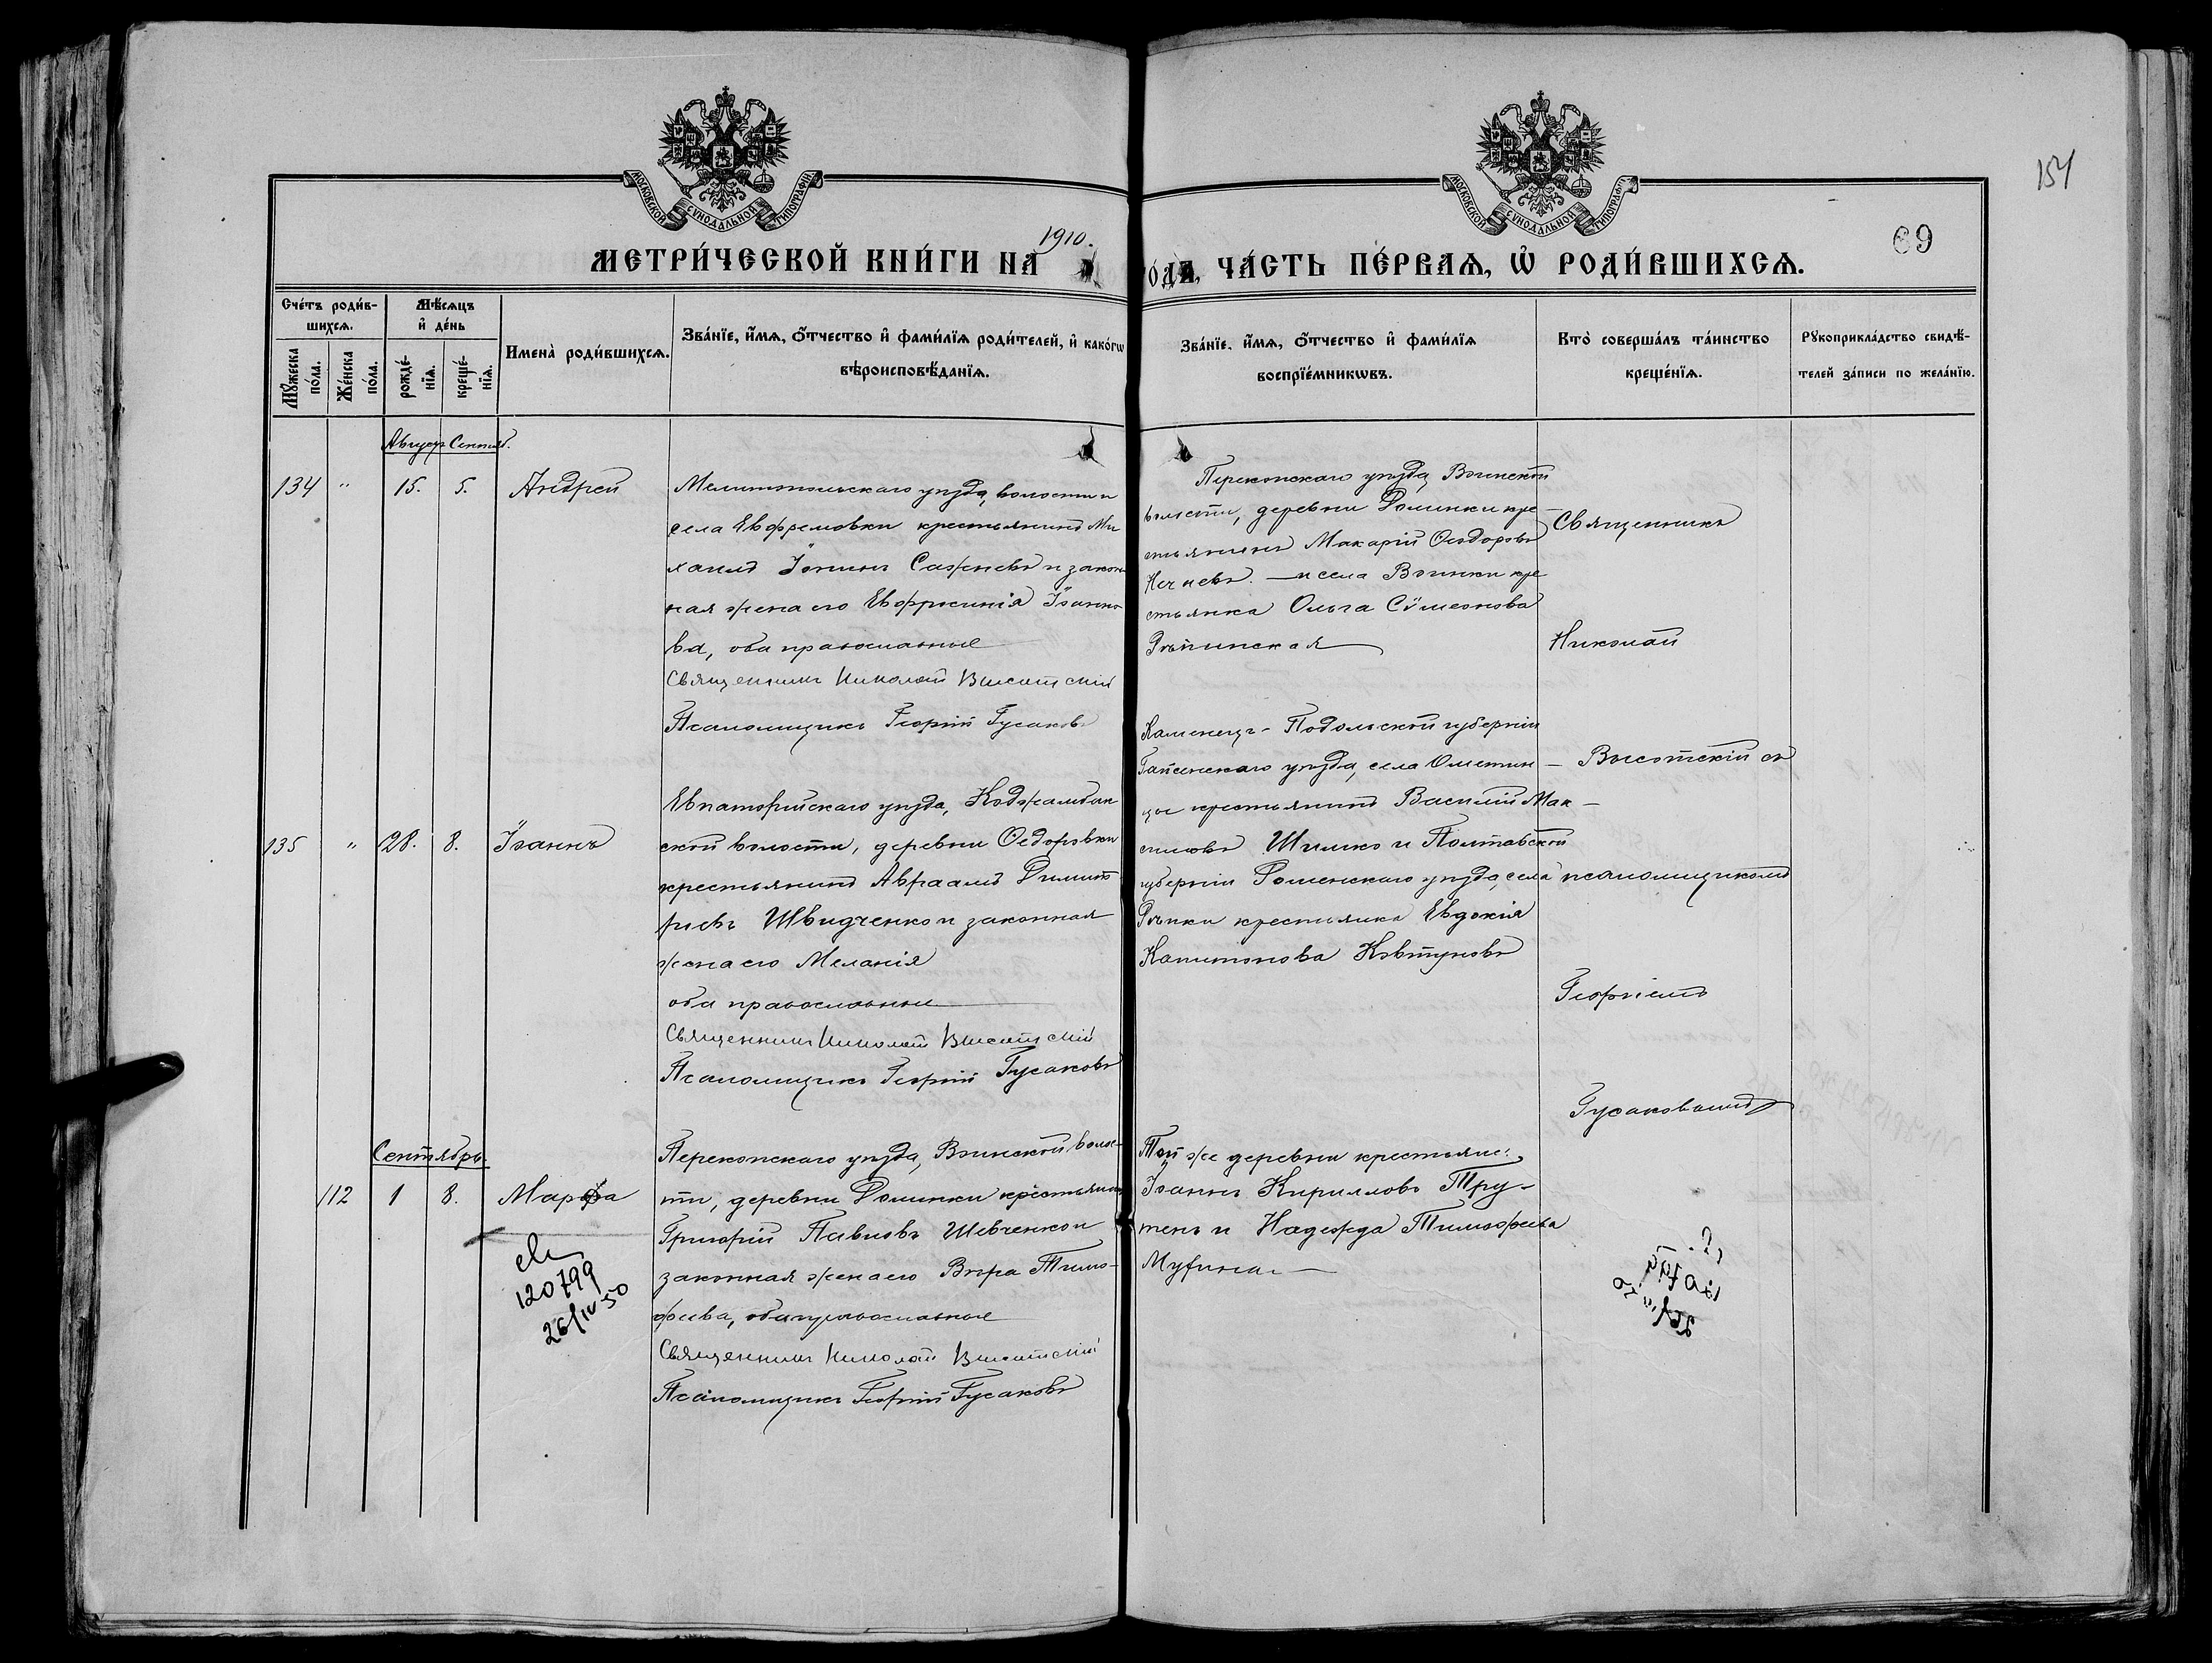 154
МОСКОВСКОЙ СѴНОДАЛЬНОЙ ТИПОГРАФІИ
МОСКОВСКОЙ СѴНОДАЛЬНОЙ ТИПОГРАФІИ
1910.
69
МЕТРИ́ЧЕСКОЙ КНИ́ГИ НА
ЧА́СТЬ ПЕ́РВАѦ, Ѡ РОДИ́ВШИХСѦ.
Сче́тъ роди́в-
шихсѧ.
Мѣ́сѧцъ
и҆ де́нь
Мꙋжеска
по́ла.
Же́нска
по́ла.
рожде́-
нїѧ.
креще́-
нїѧ.
Имена̀ роди́вшихсѧ.
Зва́нїе, и҆́мѧ, ѻ҆́тчество и҆ фами́лїѧ роди́телей, и҆ како́гѡ
вѣроисповѣ́данїѧ.
Зва́нїе, и҆́мѧ, ѻ҆́тчество и҆ фами́лїѧ
воспрїе́мникѡвъ.
Кто̀ соверша́лъ та́инство
креще́нїѧ.
Рꙋкоприкла́дство свидѣ́-
телей за́писи по жела́нїю.
Августъ Сентяб.
134 " 15. 5. Андрей
Мелитопольскаго уѣзда, волости и
села Евфремовки крестьянинъ Ми
хаилъ Іонинъ Сажневъ и закон
ная жена его Евфросинія Іоанно
ва, оба православные
Священникъ Николай Высотскій
Псаломщикъ Георгій Гусаковъ
Перекопскаго уѣзда, Воинской
волости, деревни Долинки кре
стьянинъ Макарій Ѳеодоровъ
Нечаевъ. — и села Воинки кре
стьянка Ольга Сѵмеонова
Рѣпинская
135 " 28. 8. Іоаннъ
Евпаторійскаго уѣзда, Коджамбак
ской волости, деревни Ѳедоровки
крестьянинъ Авраамъ Димит
ріевъ Швидченко и законная
жена его Меланія
оба православные
Священникъ Николай Высотскій
Псаломщикъ Георгій Гусаковъ
Каменецъ-Подольской губерніи
Гайсинскаго уѣзда, села Ометин
цы крестьянинъ Василій Мак-
симовъ Шилко и Полтавской
губерніи Роменскаго уѣзда, села
Рѣпки крестьянка Евдокія
Капитонова Ковтуновъ
Сентябрь
112 1 8. Марѳа
Перекопскаго уѣзда, Воинской волос-
ти, деревни Долинки крестьянинъ
Григорій Павловъ Шевченко и
законная жена его Вѣра Тимо-
фѣева, оба православные
Священникъ Николай Высотскій
Псаломщикъ Георгій Гусаковъ
Той же деревни крестьяне:
Іоаннъ Кирилловъ Тру-
тень и Надежда Тимоѳеева
120799
26/IV 50
Священникъ
Николай
Высотскій съ
псаломщикомъ
Георгіемъ
Гусаковымъ